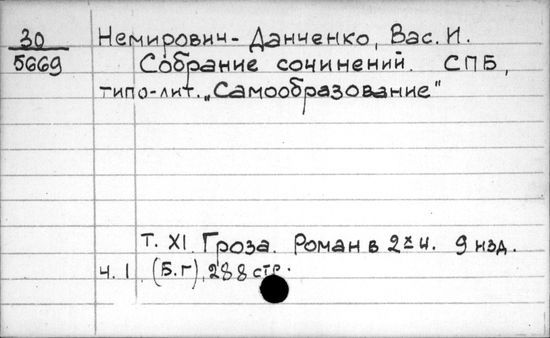 30
5669
Немирович-Данченко, Вас. И.
Собрание сочинений. СПБ,
типо-лит. „Самообразование"
Т. XI Гроза. Роман в 2х ч. 9 изд.
ч. I. (Б.г), 288 стр.